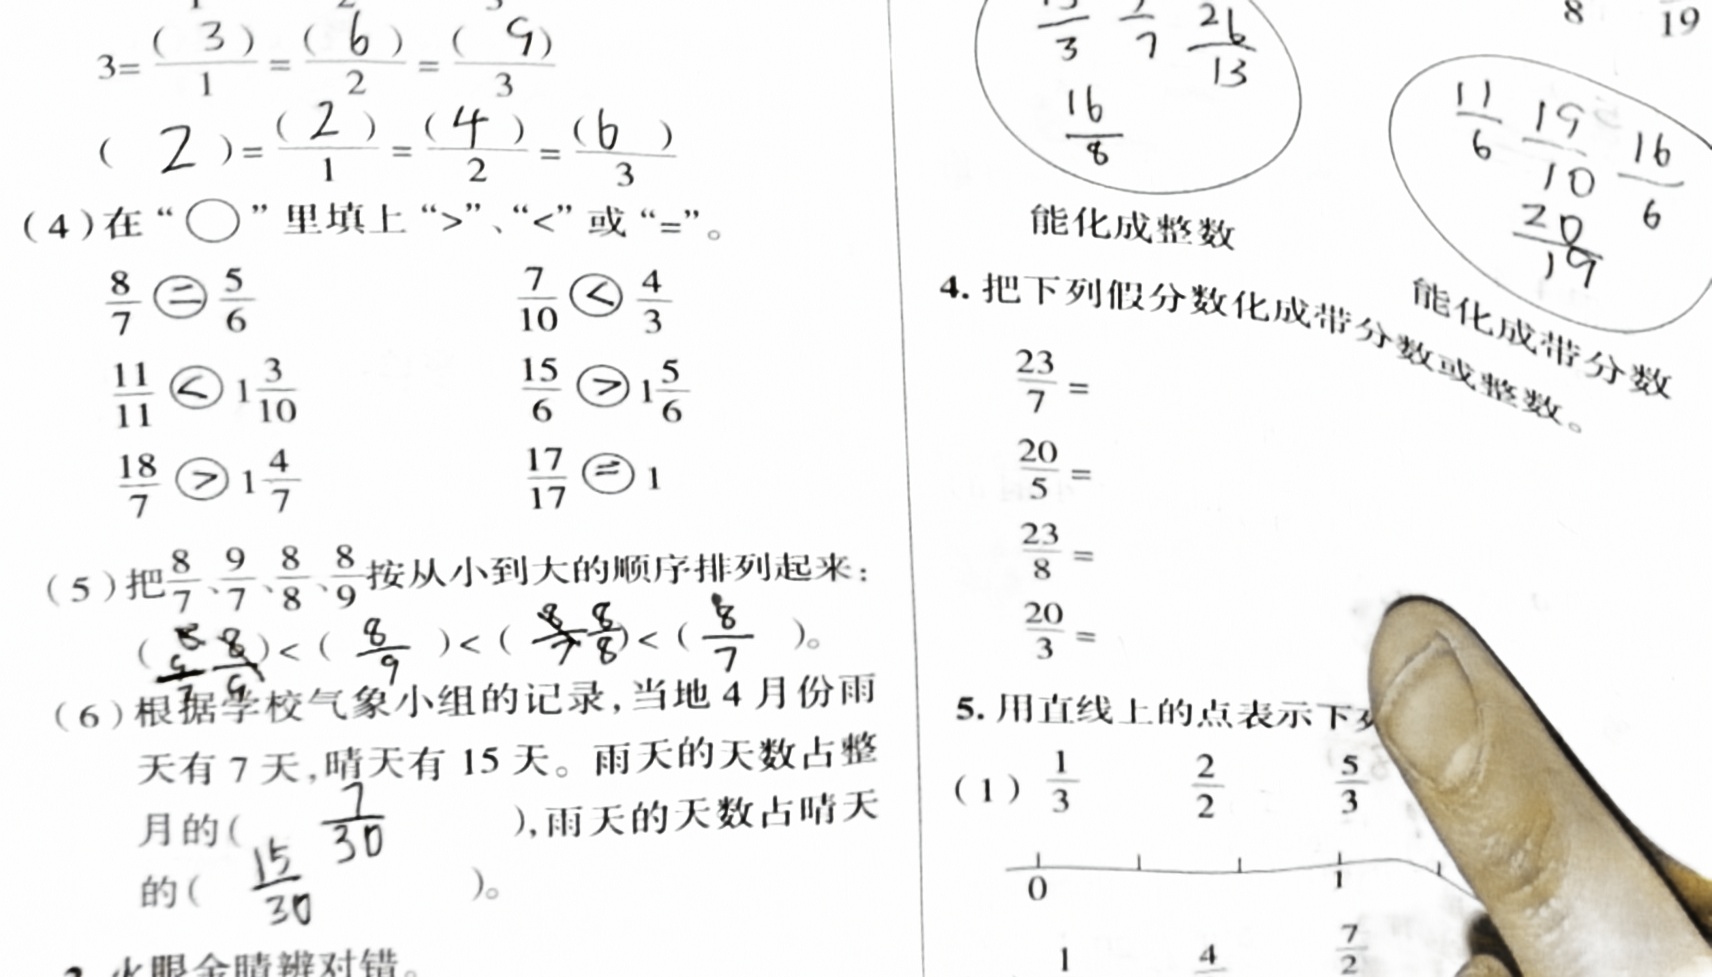 3= ( 3 )/1 = ( 6 )/2 = ( 9 )/3
( 2 )= ( 2 )/1 = ( 4 )/2 = ( 6 )/3
(4)在“○”里填上“>”、“<”或“=”。
8/7 = 5/6 7/10 < 4/3
11/11 < 1 3/10 15/6 > 1 5/6
18/7 > 1 4/7 17/17 = 1
(5)把 8/7、9/7、8/8、8/9 按从小到大的顺序排列起来:
( )<( 8/9 )<( 8/8 )<( 8/7 )。
(6)根据学校气象小组的记录,当地4月份雨
天有7天,晴天有15天。雨天的天数占整
月的( 7/30 ),雨天的天数占晴天
的( 15/30 )。
火眼金睛辨对错。
26/13
16/8
能化成整数
8 19
11/6 19/10 16/6
20/19
能化成带分数
4. 把下列假分数化成带分数或整数。
23/7 =
20/5 =
23/8 =
20/3 =
5. 用直线上的点表示下
(1) 1/3 2/2 5/3
0 1
1 4 7/2